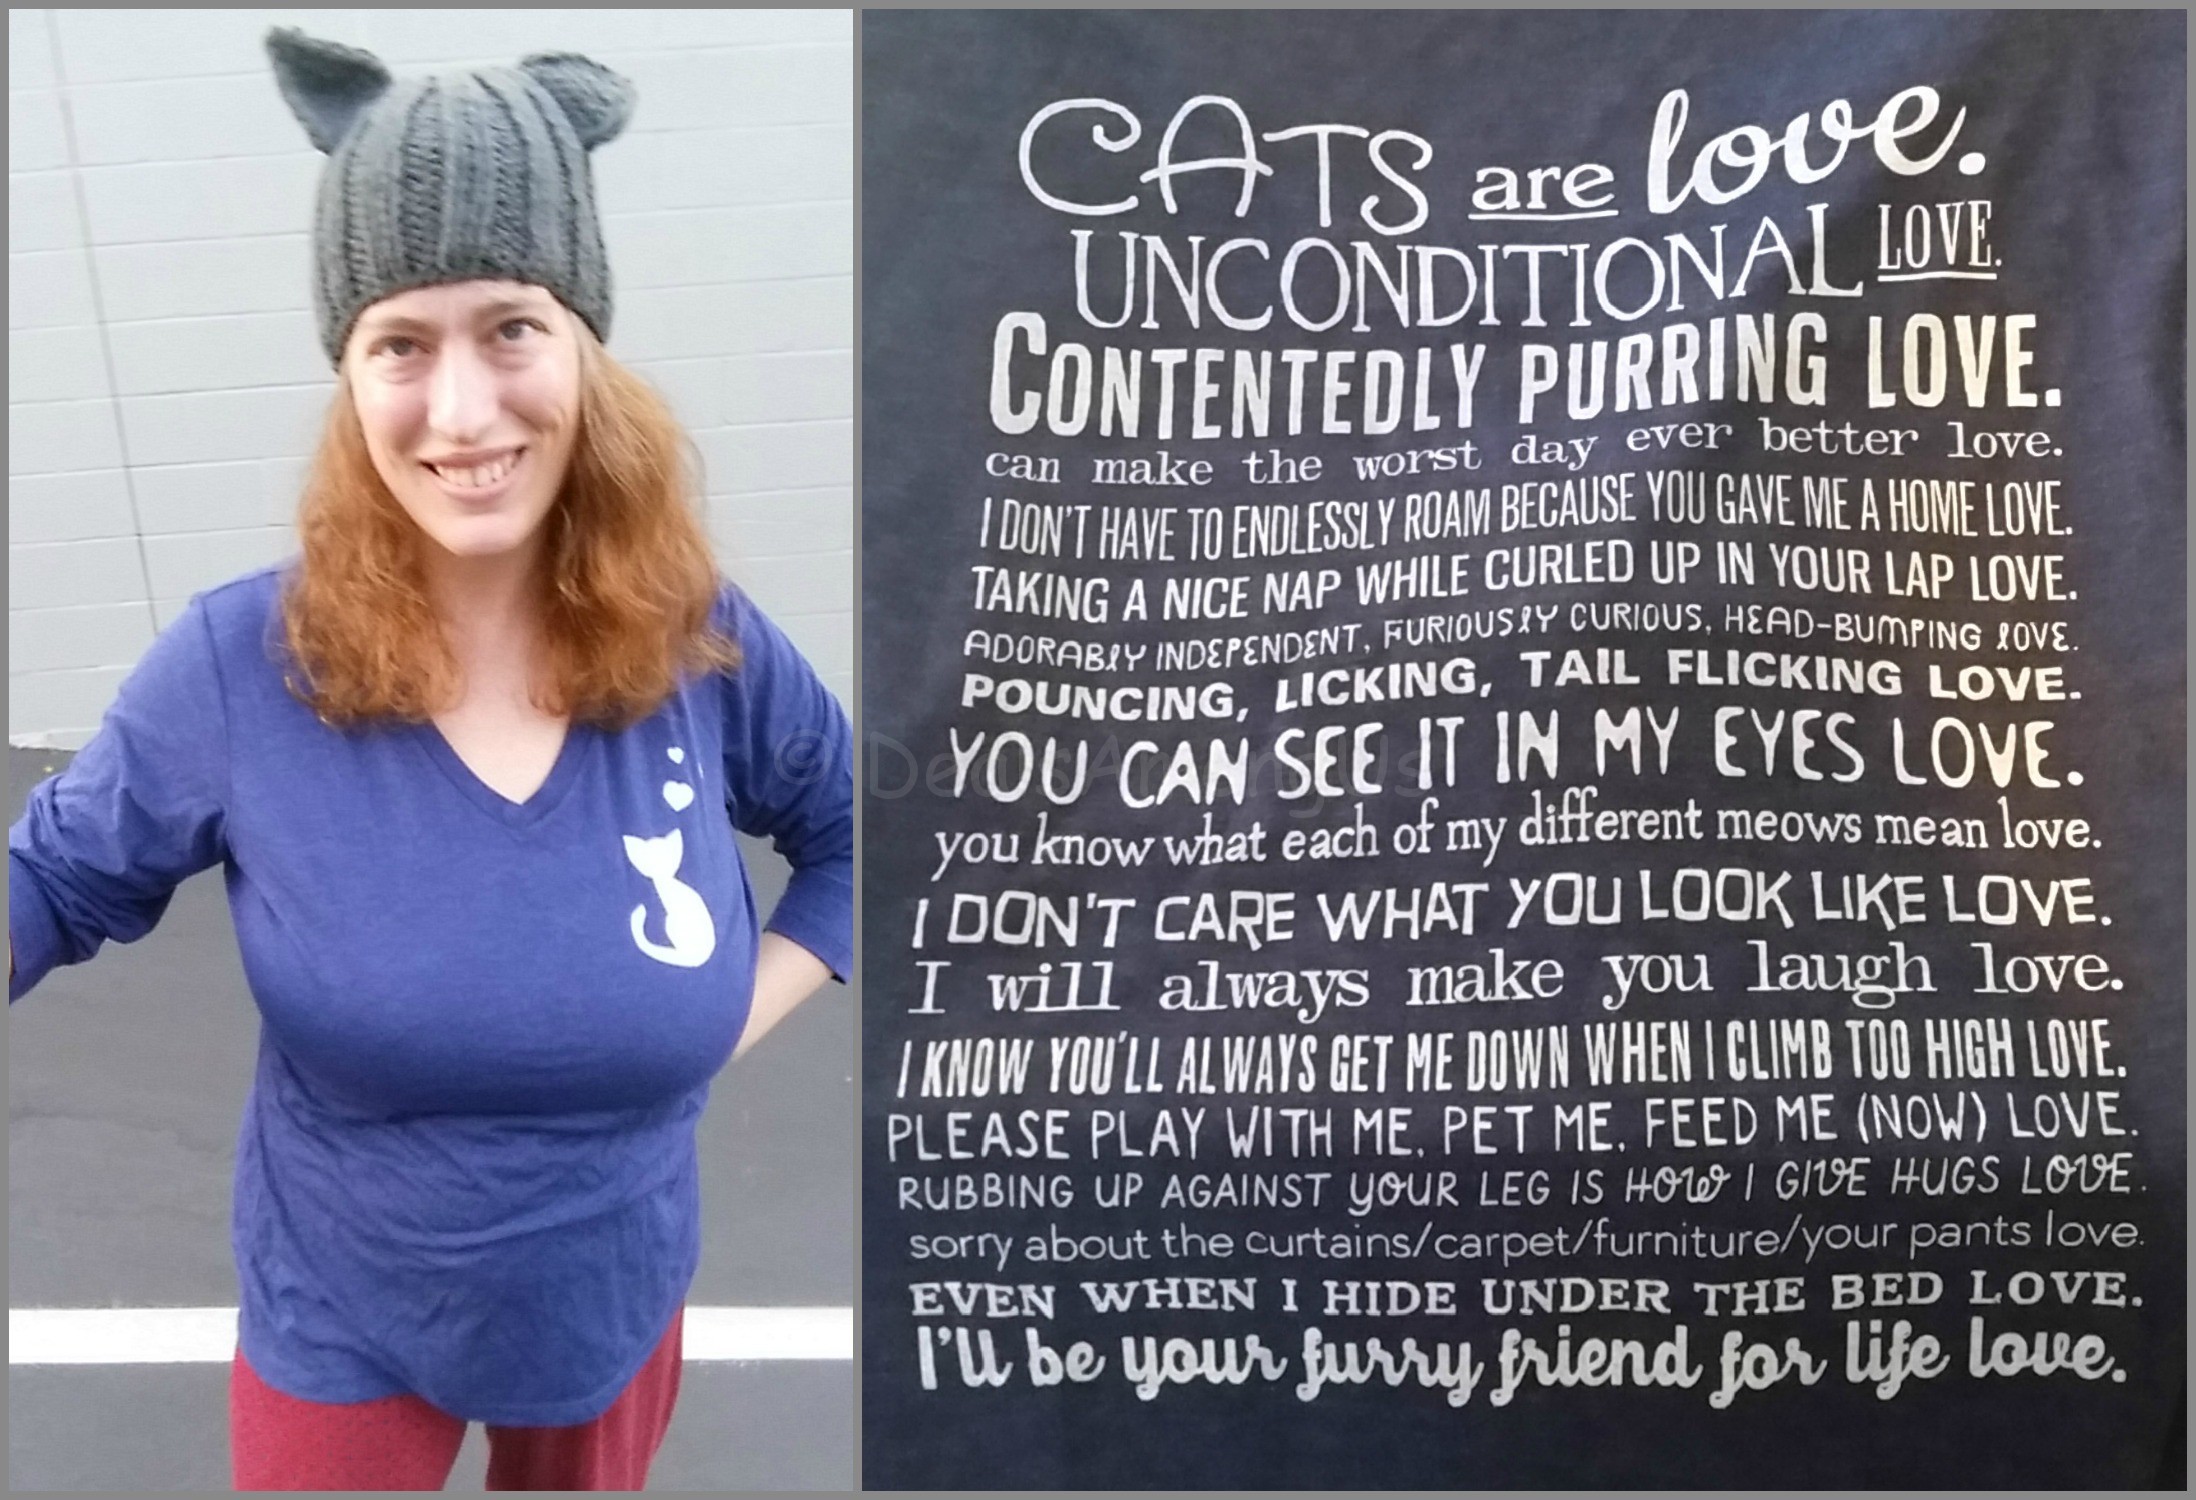 CATS are love.
UNCONDITIONAL LOVE.
CONTENTEDLY PURRING LOVE.
can make the worst day ever better love.
I DON'T HAVE TO ENDLESSLY ROAM BECAUSE YOU GAVE ME A HOME LOVE.
TAKING A NICE NAP WHILE CURLED UP IN YOUR LAP LOVE.
ADORABLY INDEPENDENT, FURIOUSLY CURIOUS, HEAD-BUMPING LOVE.
POUNCING, LICKING, TAIL FLICKING LOVE.
YOU CAN SEE IT IN MY EYES LOVE.
you know what each of my different meows mean love.
I DON'T CARE WHAT YOU LOOK LIKE LOVE.
I will always make you laugh love.
I KNOW YOU'LL ALWAYS GET ME DOWN WHEN I CLIMB TOO HIGH LOVE.
PLEASE PLAY WITH ME, PET ME, FEED ME (NOW) LOVE.
RUBBING UP AGAINST YOUR LEG IS HOW I GIVE HUGS LOVE.
sorry about the curtains/carpet/furniture/your pants love.
EVEN WHEN I HIDE UNDER THE BED LOVE.
I'll be your furry friend for life love.
© DealsAmongUs